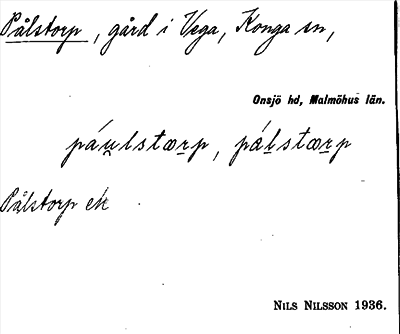 Pålstorp, gård i Vega, Konga sn,
Onsjö hd, Malmöhus län.
páu̯lstœrp, pálstœrp
Pålstorp ek
NILS NILSSON 1936.